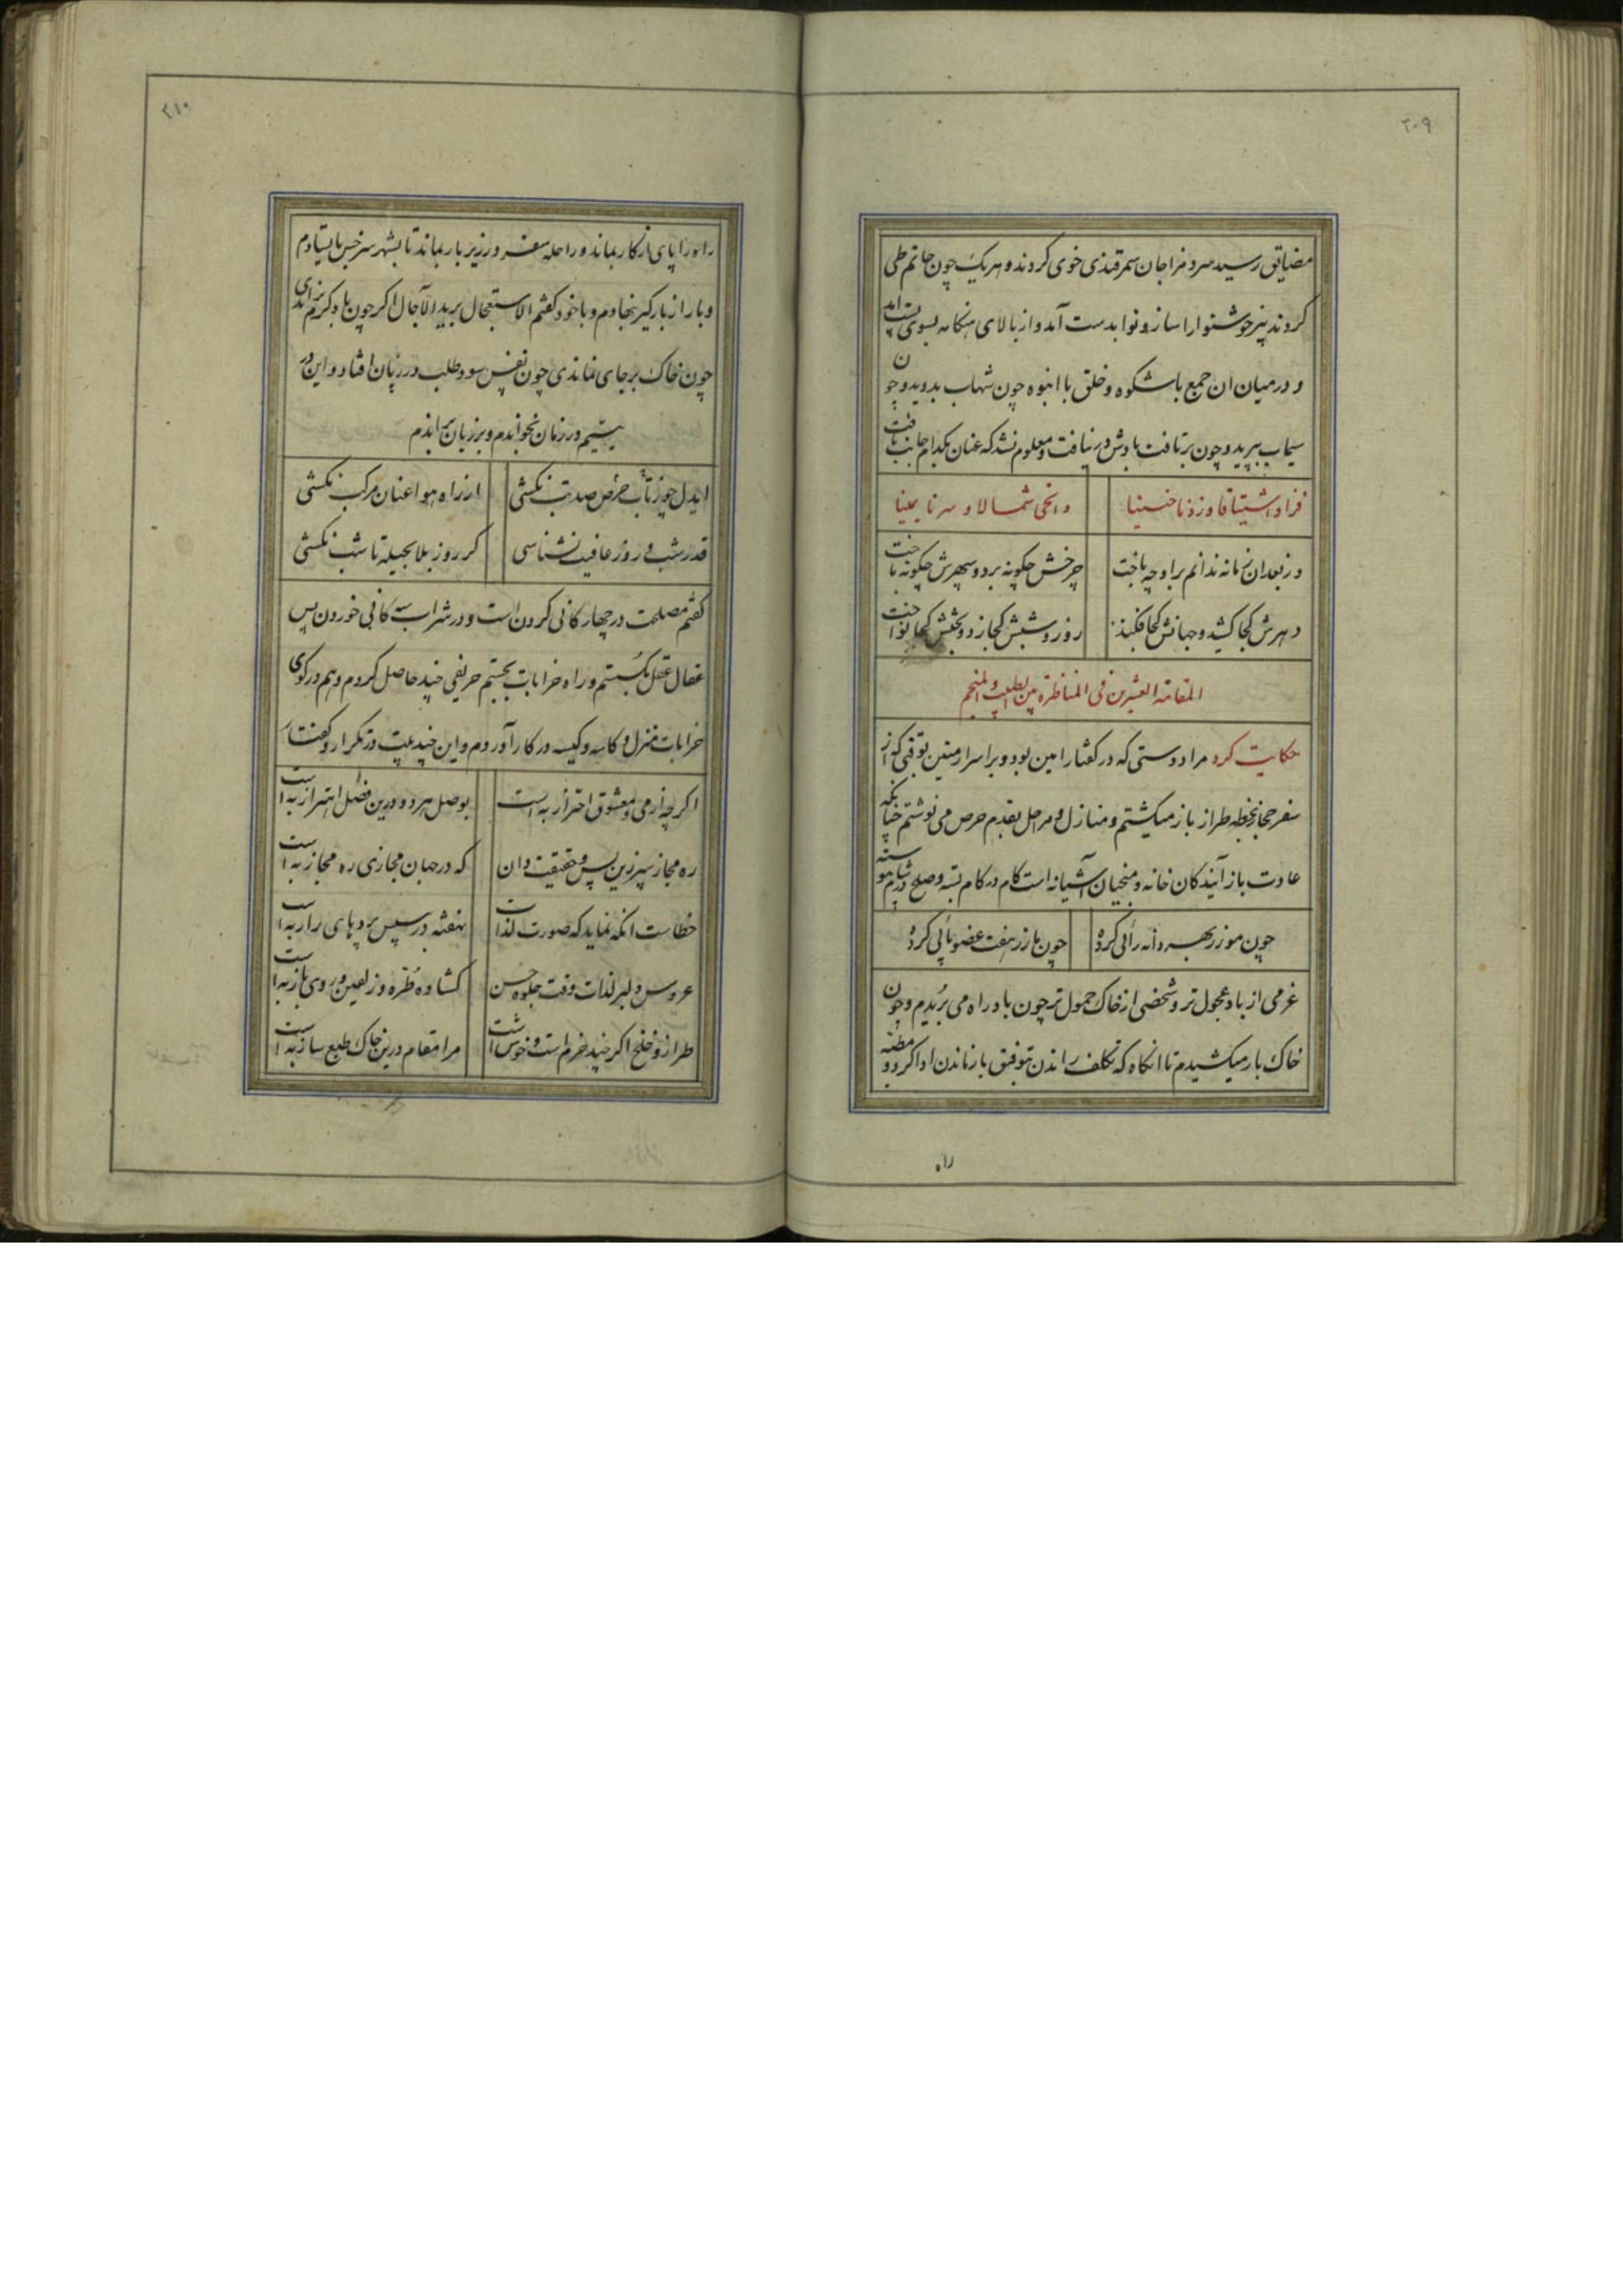 ۲۰۹
مضایق رسید سرو فراجان سمرقندی خوی کردند و هر یک چون حاتم طی
کردند پیر خوشنوا را ساز و نوا بدست آمد و از بالای هنگامه بسوی پست آمد
و در میان ان جمع باشکوه و خلق با انبوه چون شهاب بدوید و چون
سیماب بپرید و چون برتافت بادش در نیافت و معلوم نشد که عنان بکدام جانب تافت
فزاد اشتیاقا وزدنا حنینا وانحی شمالا و سرنا یمینا
وز بعد ان زمانه ندانم بر او چه باخت چرخش چگونه برد و سپهرش چگونه باخت
دهرش کجا کشید و جهانش کجا فکند روز و شبش کجا زد و بختش کجا نواخت
المقامة العشرین فی المناظرة بین الطبیب و المنجم
حکایت کرد مرا دوستی که در گفتار امین بود و بر اسرار متین بوقتی که از
سفر حجاز بخطه طراز باز میکشتم و منازل و مراحل بقدم حرص می نوشتم چنانکه
عادت باز آیندکان خانه و منجیان آشیانه است کام در کام بسته و صلح در شام
چون مور ز بهر دانه رائی کرده چون مار ز هفت عضو پائی کرده
عزمی از باد عجول تر و شخصی از خاک حمول تر چون باد راه می بریدم و چون
خاک بار میکشیدم تا انکاه که تکلف راندن بتوفیق باز ماندن ادا کرد و مطیه
راه
۲۱۰
راه را پای از کار بماند و راحله سفر در زیر بار بماند تا بشهر سرخس بایستادم
و بار از بارکیر بنهادم و با خود کفتم الاستعجال برید الآجال اکر چون باد کرم نراندی
چون خاک بر جای نماندی چون نفس سود طلب در زیان افتاد و این دو
بیتیم در زمان بخواندم و بر زبان براندم
ایدل چو ز تاب حرص صد تب نکشی از راه هوا عنان مرکب نکشی
قدر شب و روز عافیت نشناسی کر روز بلا بحیله تا شب نکشی
کفتم مصلحت در چهار کانی کردن است و در شراب سه کانی خوردن پس
عقال عقل بکسستم و راه خرابات بجستم حریفی چند حاصل کردم و هم در کوی
خرابات منزل و کاسه و کیسه در کار آوردم و این چند بیت در تکرار و گفتار
اکرچه از می و معشوق احتراز به است بوصل هر دو درین فصل اهتزاز به است
ره مجاز سپر زین پس و حقیقت دان که در جهان مجازی ره مجاز به است
خطاست انکه نماید که صورت لذات نهفته در سپس پردهای راز به است
عروس دلبر لذات وقت جلوه حسن کشاده طره و زلفین و روی باز به است
طراز و خلخ اکر چند خرم است و خوش است مرا مقام درین خاک طبع ساز به است